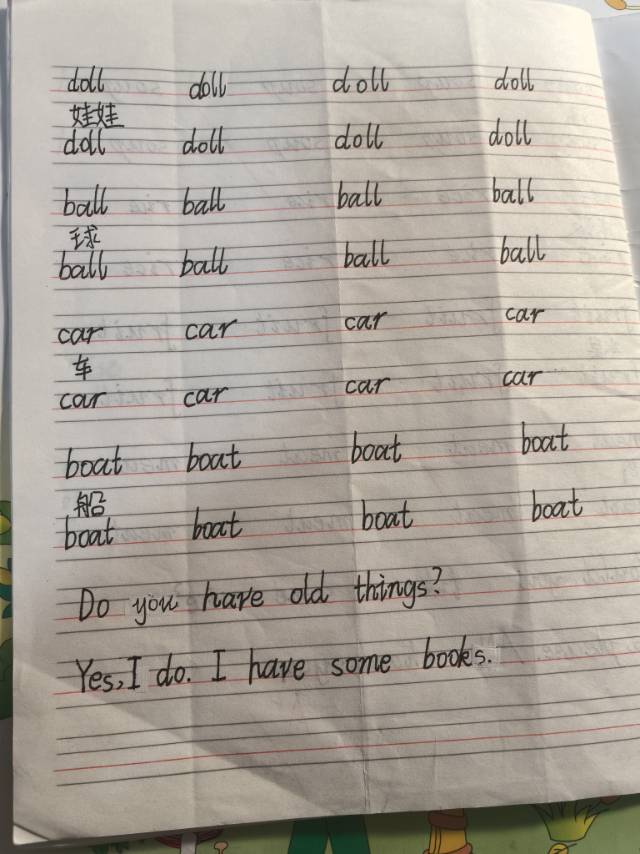 doll doll doll doll
娃娃
doll doll doll doll
ball ball ball ball
球
ball ball ball ball
car car car car
车
car car car car
boat boat boat boat
船
boat boat boat boat
Do you have old things?
Yes, I do. I have some books.